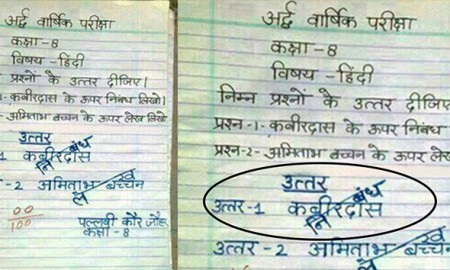 अर्द्ध वार्षिक परीक्षा
कक्षा -8
विषय - हिंदी
प्रश्नों के उत्तर दीजिए।
1- कबीरदास के ऊपर निबंध लिखो।
- अमिताभ बच्चन के ऊपर लेख लिखो
उत्तर
1 कबीरदास
निबंध
-2 अमिताभ बच्चन
लेख
00
100
पल्लवी कौर
कक्षा - 8
अर्द्ध वार्षिक परीक्षा
कक्षा -8
विषय - हिंदी
निम्न प्रश्नों के उत्तर दीजिए
प्रश्न -1- कबीरदास के ऊपर निबंध
प्रश्न-2- अमिताभ बच्चन के ऊपर लेख
उत्तर
उत्तर -1 कबीरदास
निबंध
उत्तर -2 अमिताभ बच्चन
लेख